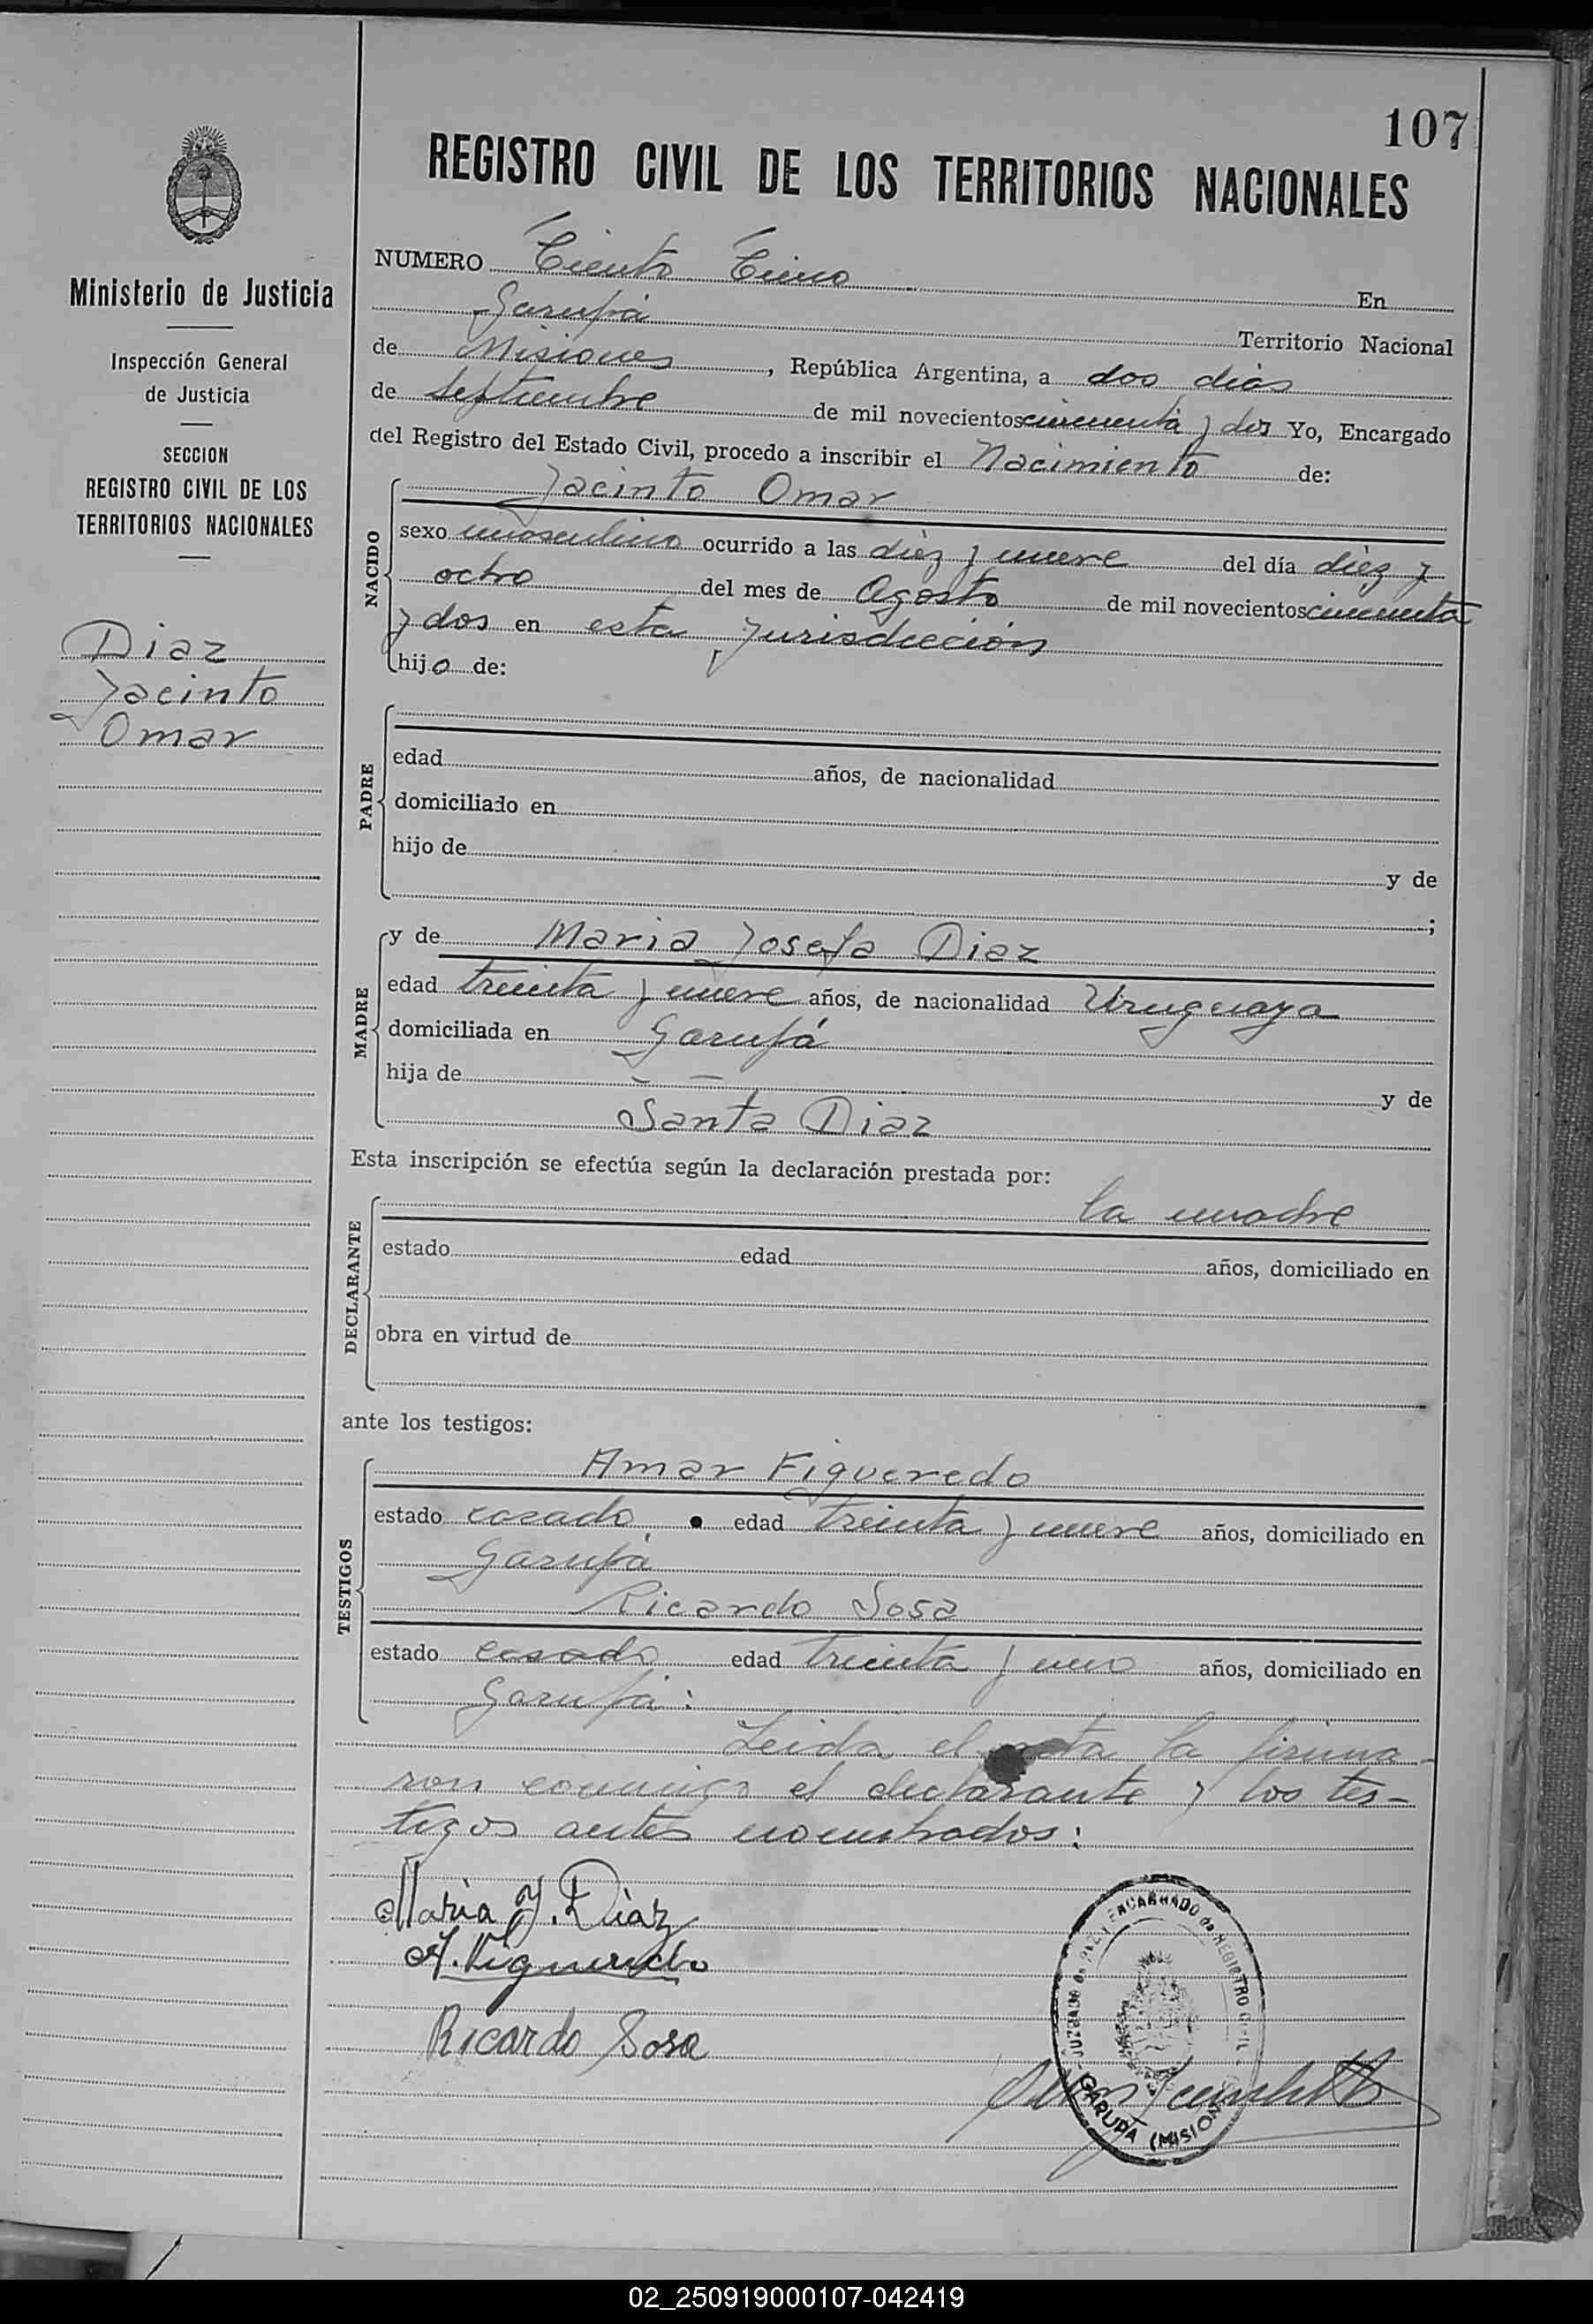 107
REGISTRO CIVIL DE LOS TERRITORIOS NACIONALES
Ministerio de Justicia
Inspección General
de Justicia
SECCION
REGISTRO CIVIL DE LOS
TERRITORIOS NACIONALES
Diaz
Jacinto
Omar
NUMERO Ciento Cinco En
Garupá Territorio Nacional
de Misiones, República Argentina, a dos dias
de Septiembre de mil novecientos cincuenta y dos Yo, Encargado
del Registro del Estado Civil, procedo a inscribir el Nacimiento de:
NACIDO
Jacinto Omar
sexo masculino ocurrido a las diez y nueve del día diez y
ocho del mes de Agosto de mil novecientos cincuenta
y dos en esta jurisdicción
hijo de:
PADRE
edad años, de nacionalidad
domiciliado en
hijo de y de
;
MADRE
y de Maria Josefa Diaz
edad treinta y nueve años, de nacionalidad Uruguaya
domiciliada en Garupá
hija de - - y de
Santa Diaz
Esta inscripción se efectúa según la declaración prestada por:
DECLARANTE
la madre
estado edad años, domiciliado en
obra en virtud de
ante los testigos:
TESTIGOS
Amar Figueredo
estado casado. edad treinta y nueve años, domiciliado en
Garupá
Ricardo Sosa
estado casado edad treinta y uno años, domiciliado en
Garupá:
Leida el acta la firma-
ron conmigo el declarante y los tes-
tigos antes nombrados:
Maria J. Diaz
A. Figueredo
Ricardo Sosa
JUZGADO de PAZ y ENCARGADO de REGISTRO CIVIL
GARUPA (MISIONES)
02_250919000107-042419